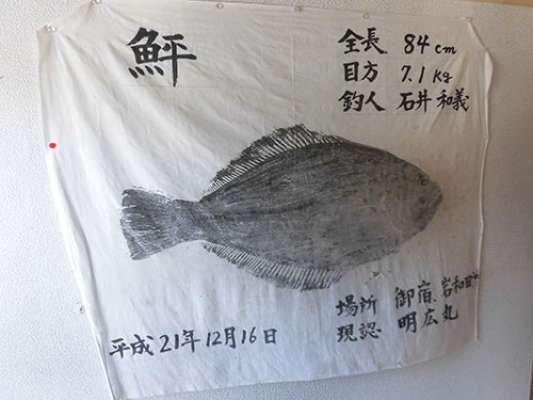 鮃
全長 84cm
目方 7.1Kg
釣人 石井和義
場所 御宿、岩和田沖
現認 明広丸
平成21年12月16日